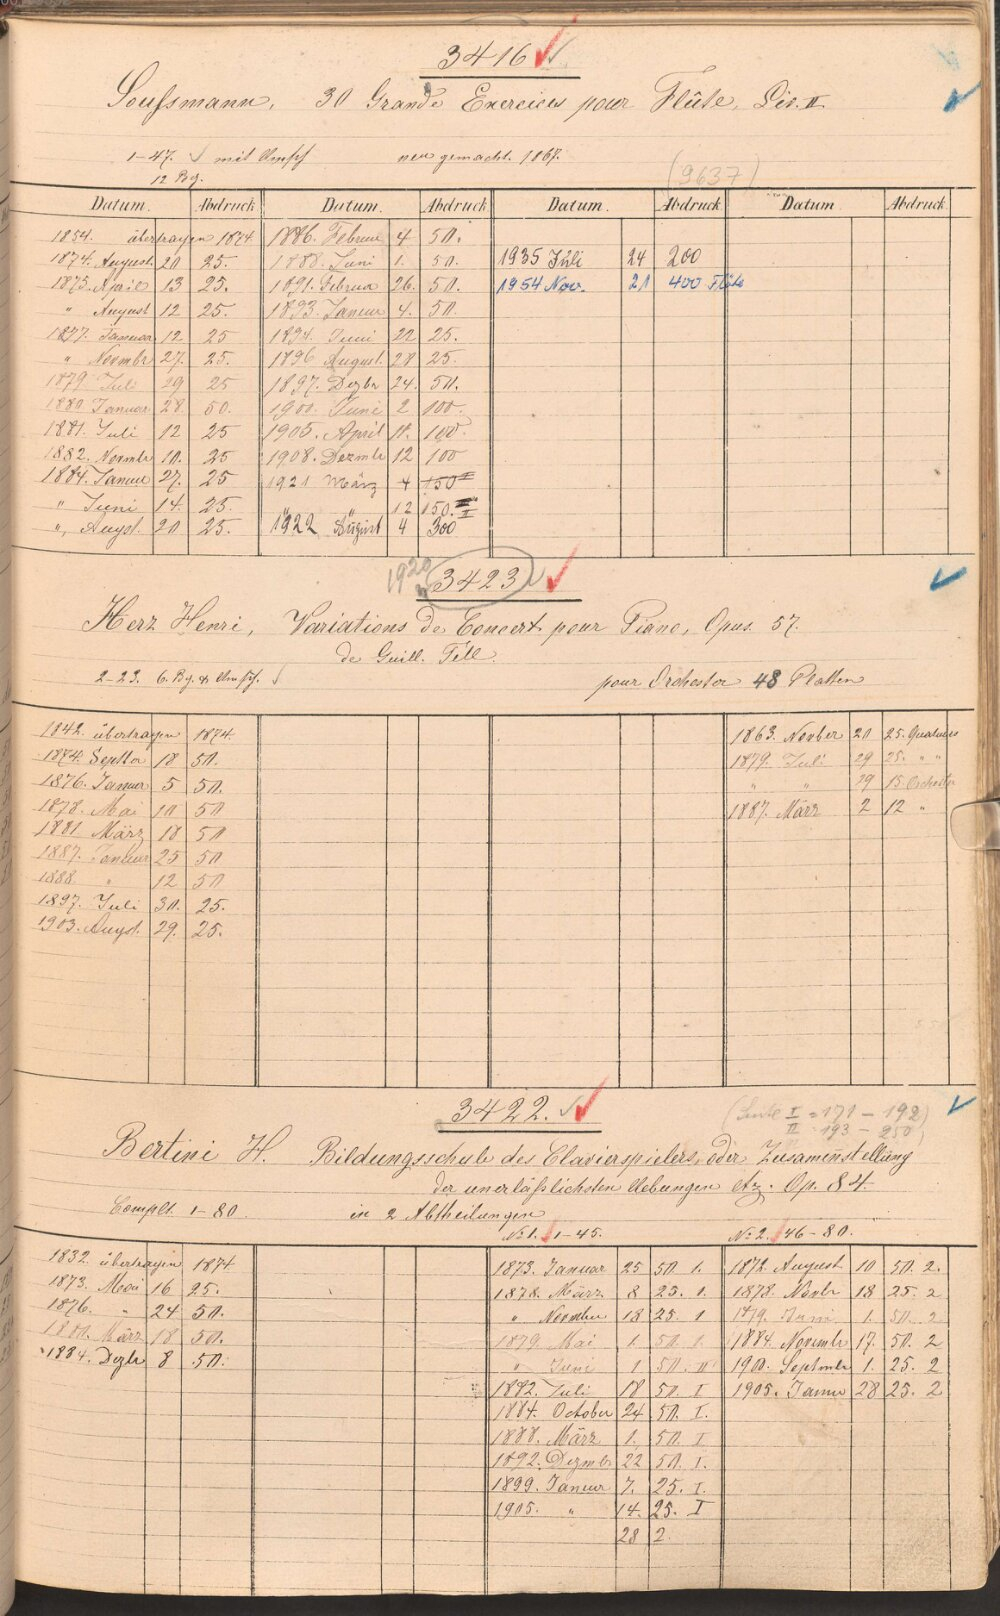 3416
Soussmann, 30 Grande Exercices pour Flûte, Liv. II
1-47. mit Umschl neu gemacht. 1867.
12 Bg. (9637)
Datum. Abdruck Datum. Abdruck Datum. Abdruck Datum Abdruck
1854. übertragen 1874. 1886. Februar 4 50.
1874. August 20 25. 1888. Juni 1. 50. 1935 Juli 24 200
1875. April 13 25. 1891. Februar 26. 50. 1954 Nov. 21 400 Flöte
" August 12 25. 1893. Januar 4. 50.
1877. Januar 12 25 1894. Juni 22 25.
" Novmbr 27. 25. 1896 August. 28 25.
1879. Juli 29 25 1897. Dezbr 24. 50.
1880 Januar 28. 50. 1900. Juni 2 100.
1881. Juli 12 25 1905. April 11. 100.
1882. Novmbr 10. 25 1908. Dezmbr 12 100
1884. Januar 27. 25 1921 März 4 150 II
" Juni 14. 25. " " 12 150.
" Augst. 20 25. 1922 August 4 300
1920
3423
Herz Henri, Variations de Concert pour Piano, Opus. 57.
de Guill. Tell.
2-23. 6. Bg. & Umsch. pour Orchester 48 Platten
1842. übertragen 1874. 1863. Novber 20 25. Quatuor
1874. Septbr 18 50. 1879. Juli 29 25. " "
1876. Januar 5 50. " " 29 15 Orchester
1878. Mai 10 50 1887. März 2 12 "
1881 März 18 50
1887. Januar 25 50
1888. " 12 50
1897. Juli 30. 25.
1903. Augst. 29. 25.
3422.
(Seite I = 171 - 192)
II = 193 - 250)
Bertini H. Bildungsschule des Clavierspielers, oder Zusammenstellung
der unerläßlichsten Uebungen etz. Op. 84.
Complt. 1-80. in 2 Abtheilungen
No 1. 1-45. No 2. 46-80.
1832 übertragen 1874 1873. Januar 25 50 1. 1872. August 10 50. 2.
1873. Mai 16 25. 1878. März 8 25. 1. 1878. Novbr 18 25. 2
1876. " 24 50. " November 18 25. 1 1879. Juni 1. 50. 2
1880. März 18 50. 1879 Mai 1. 50. 1. 1884. Novembr 17. 50. 2
1884. Dezbr 8 50. " Juni 1 50. II 1900. Septmbr 1. 25. 2
1882. Juli 18 50. I 1905. Januar 28 25. 2
1884. October 24 50. I.
1888. März 1. 50. I
1892. Dezmbr 22 50. I.
1899. Januar 7. 25. I.
1905. " 14. 25. I
28 2.